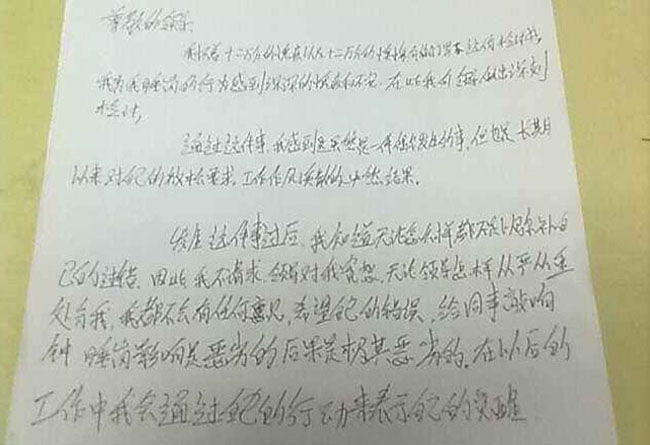 尊敬的领导
我怀着十二万分的愧疚以及十二万分的懊悔向你们写下这份检讨书,
我为我睡岗的行为感到深深的愧疚和不安,在此我向领导做出深刻
检讨,
通过这件事,我感到这虽然是一件偶尔发生的事,但也是长期
以来对自己的放松要求,工作作风涣散的必然结果。
发生这件事过后,我知道无论怎么样都不足以弥补自
己的过错,因此,我不请求领导对我宽恕,无论领导怎样从严从重
处分我,我都不会有任何意见,希望自己的错误,给同事敲响
钟 睡岗影响是恶劣的后果是极其恶劣的,在以后的
工作中我会通过自己的行动来表示自己的觉醒